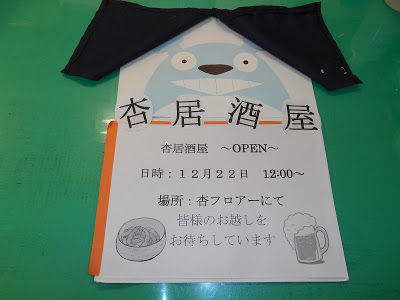 杏居酒屋
杏居酒屋　～OPEN～
日時：１２月２２日　12:00～
場所：杏フロアーにて
皆様のお越しを
お待ちしています